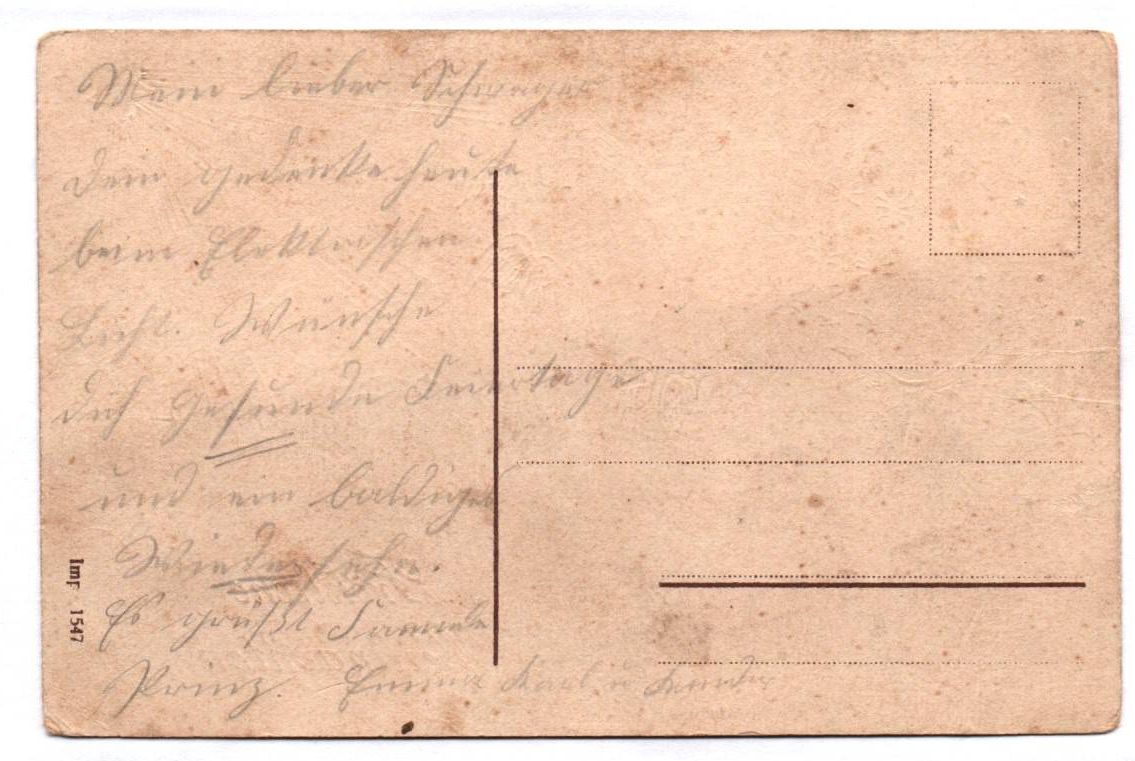 Mein lieber Schwager
Dein gedenke heute
beim Elektrischen
Licht. Wünsche
dich Gesunde Feiertage
und ein baldiges
Wiedersehn.
Es grüßt Familie
Prinz. Emma Karl u Kinder
Imp 1547